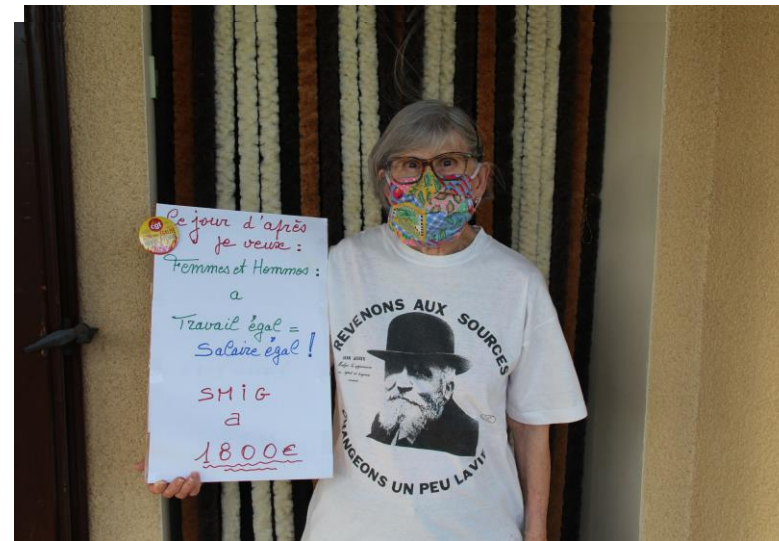 cgt
Le jour d'après
je veux :
Femmes et Hommes :
a
Travail égal =
Salaire égal !
SMIG
a
1800€
REVENONS AUX SOURCES
CHANGEONS UN PEU LA VIE